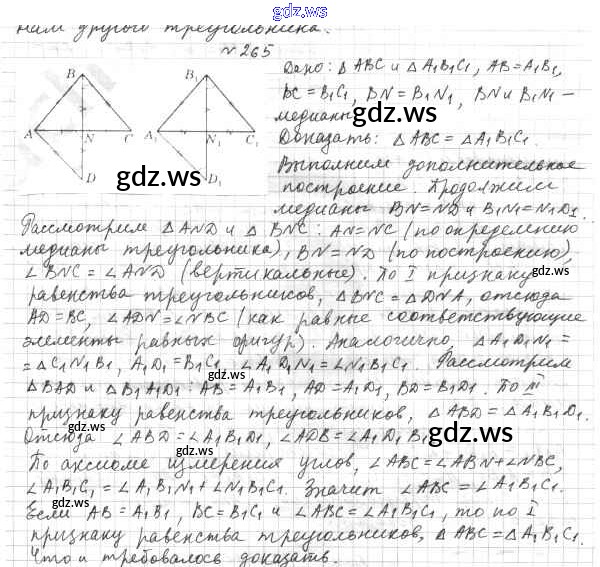 gdz.ws
нам другой треугольника.
№265
B
A
N
C
D
B1
A1
N1
C1
D1
Дано: △ABC и △A1B1C1, AB=A1B1,
BC=B1C1, BN=B1N1, BN и B1N1 –
медианы
Доказать: △ABC=△A1B1C1.
Выполним дополнительное
построение. Продолжим
медианы BN=ND и B1N1=N1D1.
gdz.ws
gdz.ws
Рассмотрим △AND и △BNC: AN=NC (по определению
медианы треугольника), BN=ND (по построению),
∠BNC=∠AND (вертикальные). По I признаку
равенства треугольников, △BNC=△DNA, отсюда
AD=BC, ∠ADN=∠NBC (как равные соответствующие
элементы равных фигур). Аналогично, △A1D1N1=
=△C1N1B1, A1D1=B1C1, ∠A1D1N1=∠N1B1C1. Рассмотрим
△BAD и △B1A1D1: AB=A1B1, AD=A1D1, BD=B1D1. По III
признаку равенства треугольников, △ABD=△A1B1D1.
Отсюда ∠ABD=∠A1B1D1, ∠ADB=∠A1D1B1.
По аксиоме измерения углов, ∠ABC=∠ABN+∠NBC,
∠A1B1C1=∠A1B1N1+∠N1B1C1. Значит ∠ABC=∠A1B1C1.
Если AB=A1B1, BC=B1C1 и ∠ABC=∠A1B1C1, то по I
признаку равенства треугольников, △ABC=△A1B1C1.
Что и требовалось доказать.
gdz.ws
gdz.ws
gdz.ws
gdz.ws
gdz.ws
gdz.ws
gdz.ws